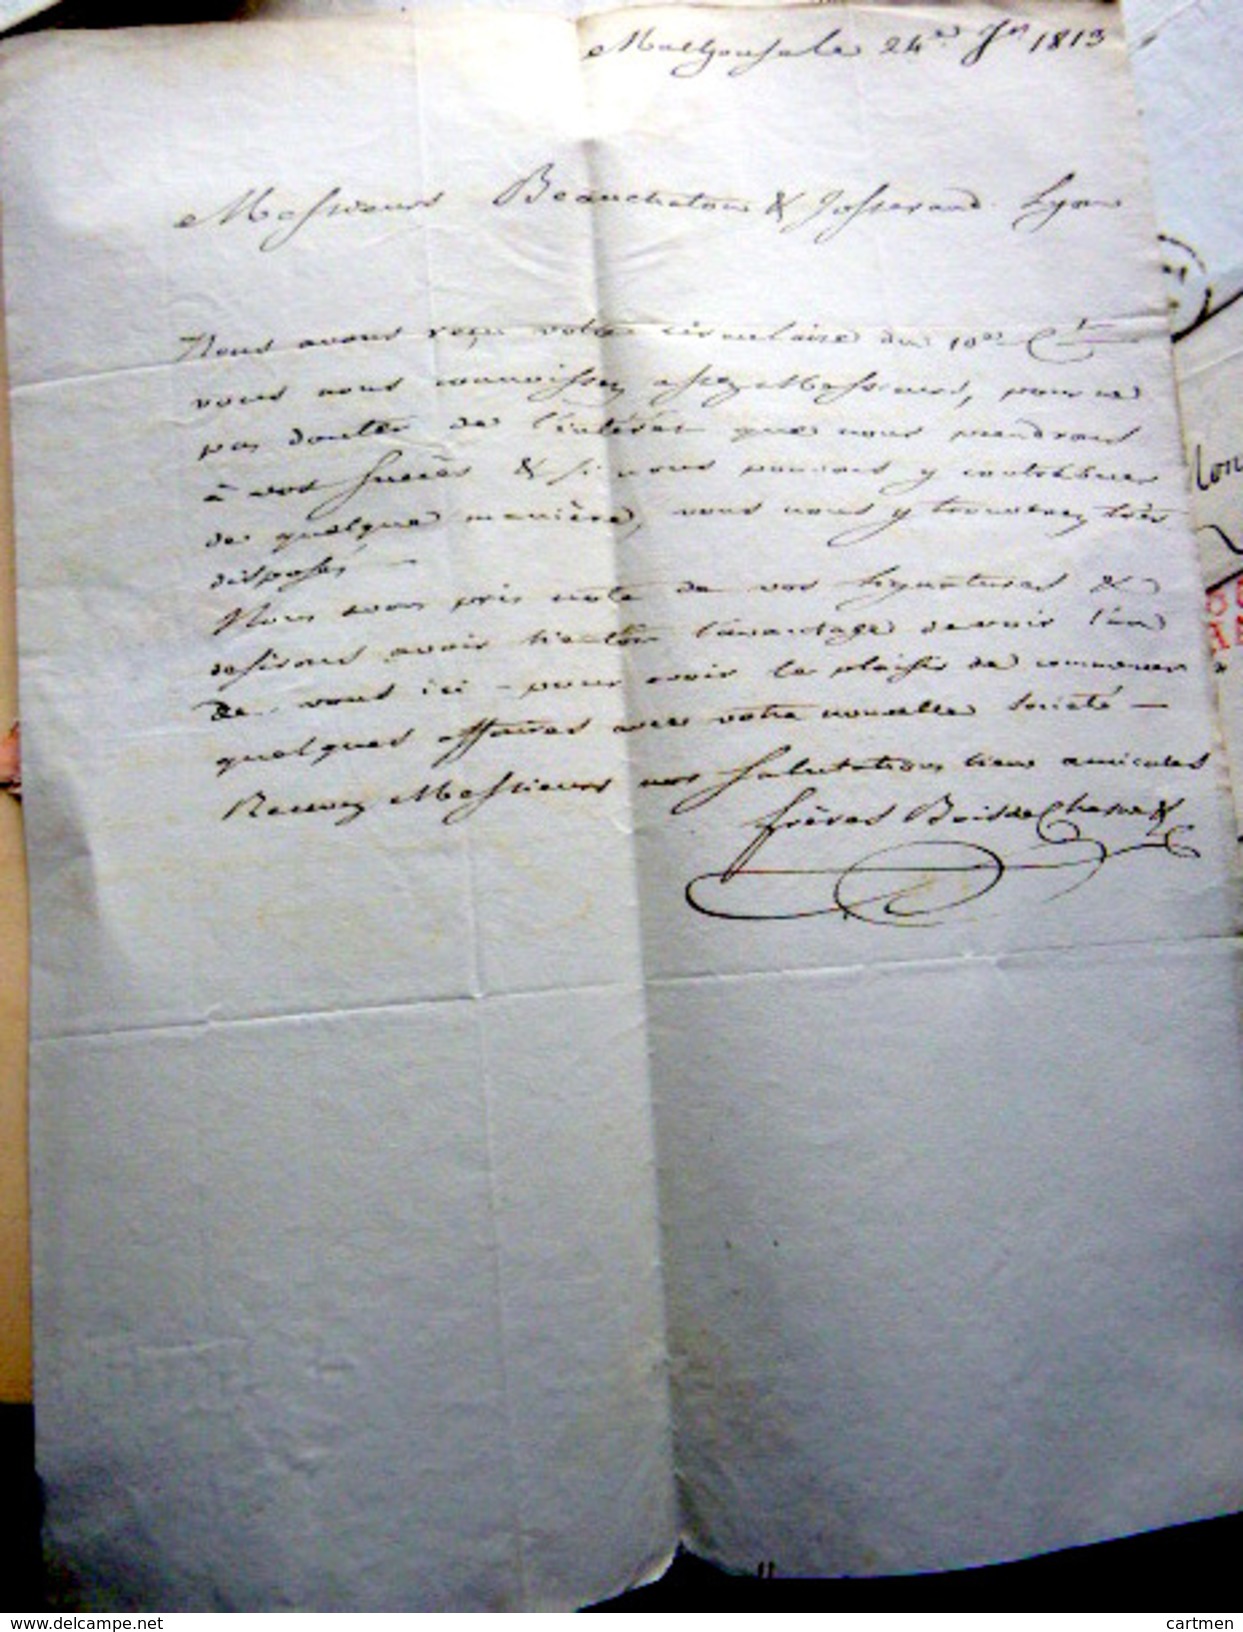 Mulhouse le 24 Jer 1813
Messieurs Beauchaton & Josserand Lyon
Nous avons reçu votre circulaire du 10
vous nous connoissez assez Messieurs, pour ne
pas douter de l'intérêt que nous prendrons
à vos succès & si nous pouvons y contribuer
de quelque manière, vous nous y trouverez très
disposés —
Nous avons pris note de vos signatures &
desirons avoir bientôt l'avantage de voir l'un
de vous ici - pour avoir le plaisir de commencer
quelques affaires avec votre nouvelle société —
Recevez Messieurs nos salutations bien amicales
frères Bois de Chesne &
Mon
delcampe.net
cartmen